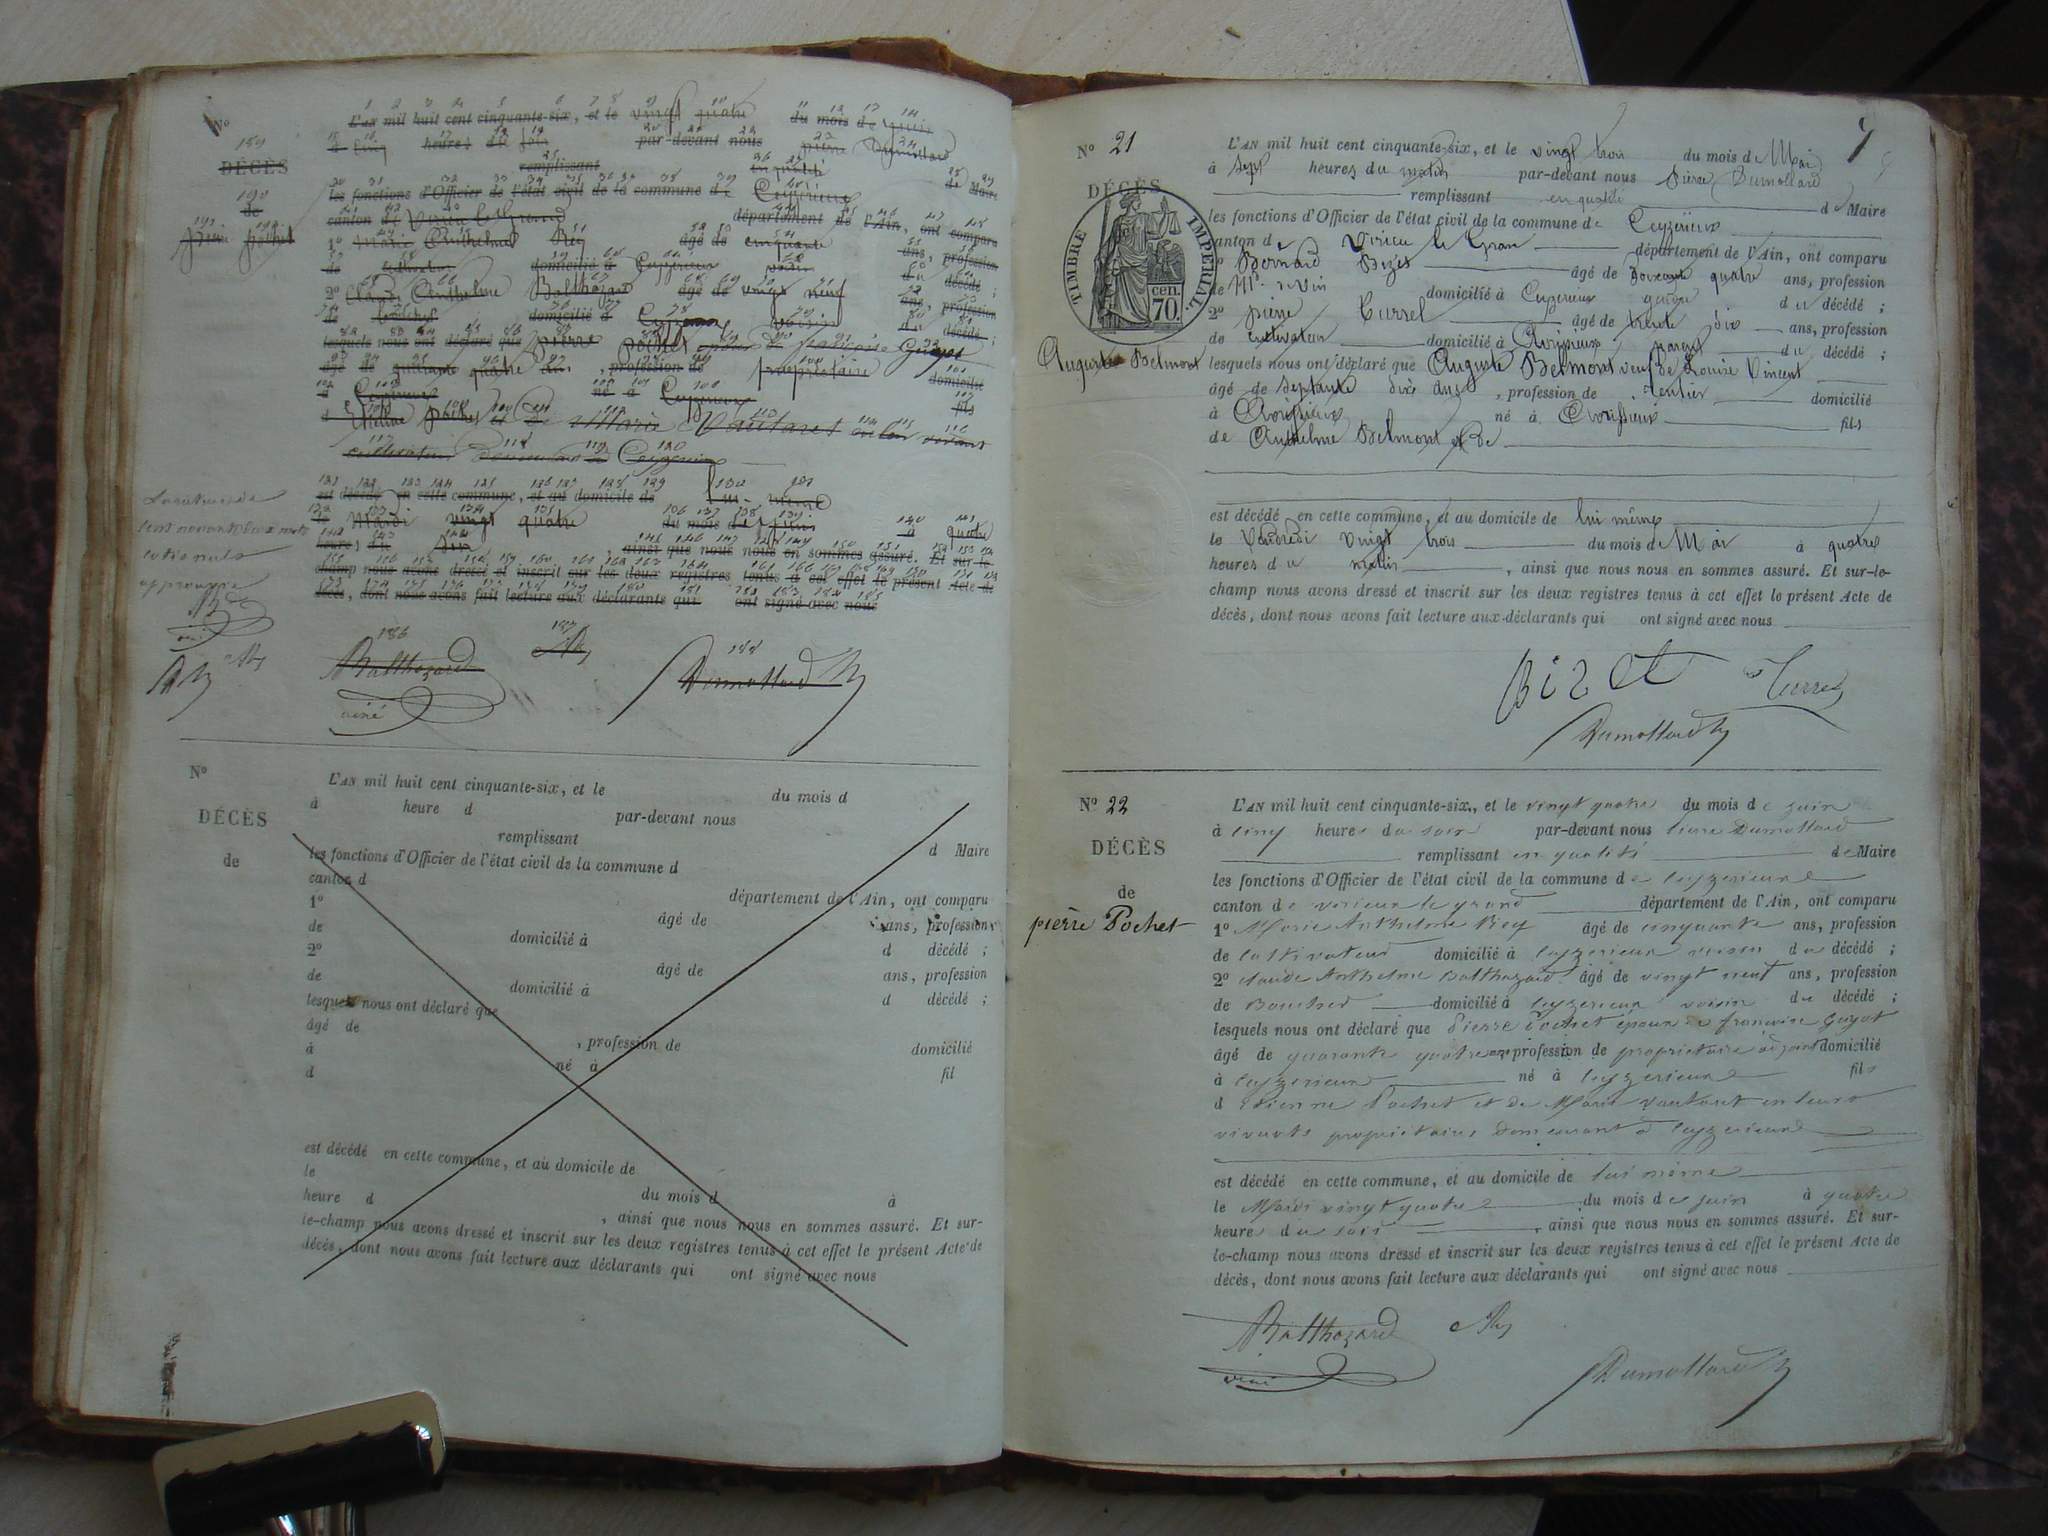 No
DÉCÈS
de
pierre pochet
L'AN mil huit cent cinquante-six, et le vingt quatre du mois de juin
à cinq heures du soir par-devant nous pierre Dumollard
remplissant en qualité de Maire
les fonctions d'Officier de l'état civil de la commune de Ceyzérieux
canton de Virieu le Grand département de l'Ain, ont comparu
1º Marie Anthelme Rey âgé de cinquante ans, profession
de domicilié à Ceyzérieux voisin du décédé ;
2º Claude Anthelme Balthazard âgé de vingt neuf ans, profession
de domicilié à voisin du décédé ;
lesquels nous ont déclaré que pierre pochet époux de françoise Guyot
âgé de quarante quatre ans, profession de propriétaire domicilié
à Ceyzérieux né à Ceyzérieux fils
d Etienne pochet et de Marie Vautaret en leur vivant
cultivateurs demeurant à Ceyzérieux
est décédé en cette commune, et au domicile de lui même
le Mardi vingt quatre du mois de juin à quatre
heures du soir, ainsi que nous nous en sommes assuré. Et sur-le-
champ nous avons dressé et inscrit sur les deux registres tenus à cet effet le présent Acte de
décès, dont nous avons fait lecture aux déclarants qui ont signé avec nous
approuvé
Balthazard Rey Dumollard
ainé
No
DÉCÈS
de
L'AN mil huit cent cinquante-six, et le du mois d
à heure d par-devant nous
remplissant d Maire
les fonctions d'Officier de l'état civil de la commune d
canton d département de l'Ain, ont comparu
1º âgé de ans, profession
de domicilié à d décédé ;
2º âgé de ans, profession
de domicilié à d décédé ;
lesquels nous ont déclaré que
âgé de , profession de domicilié
à né à fil
d
est décédé en cette commune, et au domicile de
le du mois d à
heure d , ainsi que nous nous en sommes assuré. Et sur-
le-champ nous avons dressé et inscrit sur les deux registres tenus à cet effet le présent Acte de
décès, dont nous avons fait lecture aux déclarants qui ont signé avec nous
7
No 21
DÉCÈS
TIMBRE IMPÉRIAL
70 cen.
Auguste Belmont
L'AN mil huit cent cinquante-six, et le vingt trois du mois de Mai
à sept heures du matin par-devant nous Pierre Dumollard
remplissant en qualité de Maire
les fonctions d'Officier de l'état civil de la commune de Ceyzérieux
canton de Virieu le Gran département de l'Ain, ont comparu
1º Bernard âgé de soixante quatre ans, profession
de Md. de Vin domicilié à Ceyzerieux du décédé ;
2º pierre Currel âgé de trente dix ans, profession
de cultivateur domicilié à du décédé ;
lesquels nous ont déclaré que Auguste Belmont veuf de Louise Vincent
âgé de septante dix ans, profession de rentier domicilié
à né à fils
de Anthelme Belmont et de
est décédé en cette commune, et au domicile de lui même
le Vendredi vingt trois du mois de Mai à quatre
heures du matin, ainsi que nous nous en sommes assuré. Et sur-le-
champ nous avons dressé et inscrit sur les deux registres tenus à cet effet le présent Acte de
décès, dont nous avons fait lecture aux déclarants qui ont signé avec nous
Bizet Currel
Dumollard
No 22
DÉCÈS
de
pierre Pochet
L'AN mil huit cent cinquante-six, et le vingt quatre du mois de juin
à cinq heures du soir par-devant nous pierre Dumollard
remplissant en qualité de Maire
les fonctions d'Officier de l'état civil de la commune de ceyzerieux
canton de virieux le grand département de l'Ain, ont comparu
1º Marie Anthelme Rey âgé de cinquante ans, profession
de cultivateur domicilié à ceyzerieux voisin du décédé ;
2º claude Anthelme Balthazard âgé de vingt neuf ans, profession
de Boucher domicilié à ceyzerieux voisin du décédé ;
lesquels nous ont déclaré que Pierre Pochet époux de françoise Guyot
âgé de quarante quatre ans profession de propriétaire adjoint domicilié
à ceyzerieux né à ceyzerieux fils
d Etienne Pochet et de Marie Vautaret en leurs
vivants propriétaires demeurant à ceyzerieux
est décédé en cette commune, et au domicile de lui même
le Mardi vingt quatre du mois de juin à quatre
heure du soir, ainsi que nous nous en sommes assuré. Et sur-
le-champ nous avons dressé et inscrit sur les deux registres tenus à cet effet le présent Acte de
décès, dont nous avons fait lecture aux déclarants qui ont signé avec nous
Balthazard Rey
ainé
Dumollard